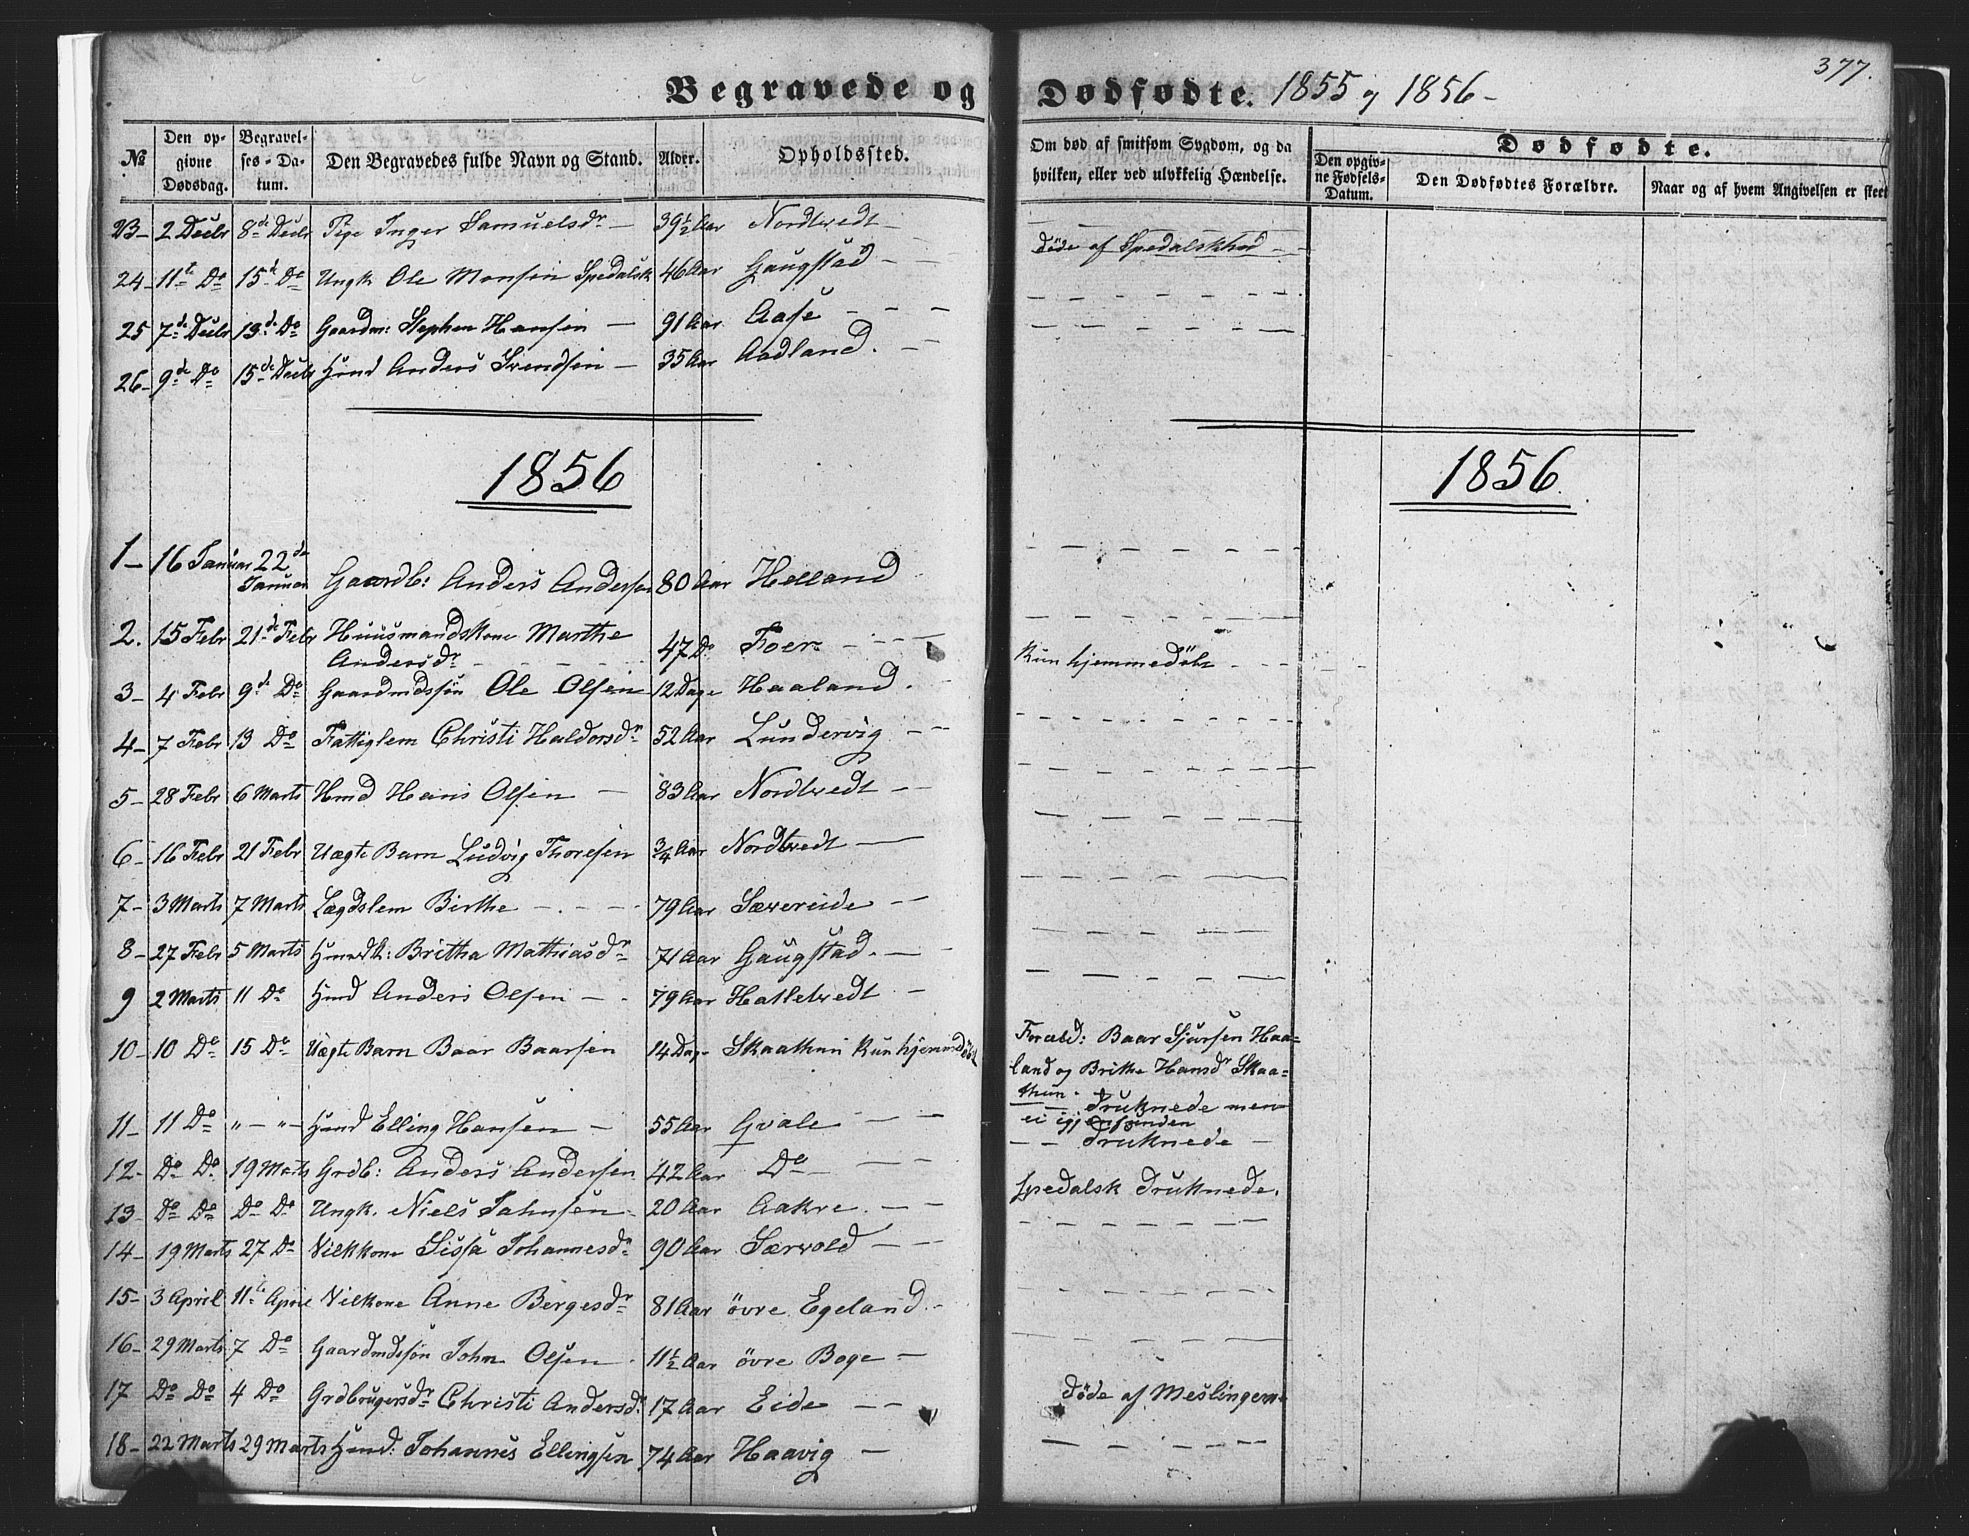 Begravede og Dødfødte. 1855 og 1856 –
377.
№ Den opgivne Dødsdag. Begravelses-Datum. Den Begravedes fulde Navn og Stand. Alder. Opholdssted. Om død af smitsom Sygdom, og da hvilken, eller ved ulykkelig Hændelse. Dødfødte. Den opgivne Fødsels-Datum. Den Dødfødtes Forældre. Naar og af hvem Angivelsen er skeet
23 – 2 Decbr 8de Decbr Pige Inger Samuelsdr – 39½ Aar Nordtvedt –
24 – 11te Do 15de Do Ungk Ole Monsen Spedalsk 46 Aar Gaugstad – – Døde af Spedalskhed – –
25 7de Decbr 13de Do Gaardm: Stephen Hansen – 91 Aar Aase – – –
26 – 9de Do 15de Decbr Hmd Anders Svendsen – 35 Aar Aadland. – –
1856 1856.
1 – 16 Januar 22de Januar Gaardb: Anders Andersen 80 Aar Helland
2. 15 Febr 21de Febr Huusmandskone Marthe Andersdr – – – – 47 Do Foer – – – –
3 – 4 Febr 9de Do Gaardmdssøn Ole Olsen 12 Dage Haaland. – Kun hjemmedöbt – – –
4 – 7 Febr 13 Do Fattiglem Christi Haldorsdr 52 Aar Lundervig – –
5 – 28 Febr 6 Marts Hmd Hans Olsen – 83 Aar Nordtvedt – –
6 – 16 Febr 21 Febr Uægte Barn Ludvig Thoresen ¾ Aar Nordtvedt –
7 – 3 Marts 7 Marts Lægdslem Birthe – . – – – 79 Aar Særereide – –
8 – 27 Febr 5 Marts Hmdk: Britha Mathiasdr 71 Aar Gaugstad. –
9 2 Marts 11 Do Hmd Anders Olsen – – 79 Aar Hatletvedt –
10 – 10 Do 15 Do Uægte Barn Baar Baarsen 14 Dage Skaathun Kun hjemmedöbt Foræld: Baar Sjursen Haaland og Brithe Hansdr Skaathun –
11 – 11 Do „ – „ – Hmd Elling Hansen – 55 Aar Qvale – – – Druknede men ei igjenfunden
12 – Do Do 19 Marts Grdb: Anders Andersen 42 Aar Do – – – – Druknede –
13 – Do Do Do Do Ungk. Niels Jahnsen – 20 Aar Aakre. – – Spedalsk Druknede.
14 – 19 Marts 27 Do Vilkkone Sissa Johannesdr 90 Aar Særvold – –
15 – 3 April 11te April Vilkone Anne Bergesdr 81 Aar övre Egeland. –
16 – 29 Marts 7 Do Gaardmdssøn John Olsen. 11½ Aar övre Boge –
17 Do Do 4 Do Grdbrugersdr Christi Andersdr 17 Aar Eide – – Döde af Meslingerne
18 – 22 Marts 29 Marts Hmd: Johannes Ellingsen 74 Aar Haavig –